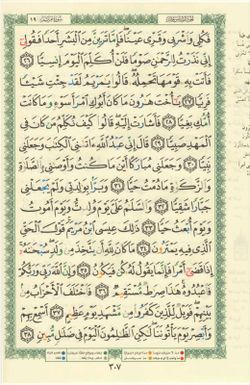 الجزء السادس عشر
سورة مريم ١٩
فَكُلِى وَٱشْرَبِى وَقَرِّى عَيْنًا فَإِمَّا تَرَيِنَّ مِنَ ٱلْبَشَرِ أَحَدًا فَقُولِىٓ
إِنِّى نَذَرْتُ لِلرَّحْمَٰنِ صَوْمًا فَلَنْ أُكَلِّمَ ٱلْيَوْمَ إِنسِيًّا ٢٦
فَأَتَتْ بِهِۦ قَوْمَهَا تَحْمِلُهُۥ قَالُوا۟ يَٰمَرْيَمُ لَقَدْ جِئْتِ شَيْـًٔا
فَرِيًّا ٢٧ يَٰٓأُخْتَ هَٰرُونَ مَا كَانَ أَبُوكِ ٱمْرَأَ سَوْءٍ وَمَا كَانَتْ
أُمُّكِ بَغِيًّا ٢٨ فَأَشَارَتْ إِلَيْهِ قَالُوا۟ كَيْفَ نُكَلِّمُ مَن كَانَ فِى
ٱلْمَهْدِ صَبِيًّا ٢٩ قَالَ إِنِّى عَبْدُ ٱللَّهِ ءَاتَىٰنِىَ ٱلْكِتَٰبَ وَجَعَلَنِى
نَبِيًّا ٣٠ وَجَعَلَنِى مُبَارَكًا أَيْنَ مَا كُنتُ وَأَوْصَٰنِى بِٱلصَّلَوٰةِ
وَٱلزَّكَوٰةِ مَا دُمْتُ حَيًّا ٣١ وَبَرًّۢا بِوَٰلِدَتِى وَلَمْ يَجْعَلْنِى
جَبَّارًا شَقِيًّا ٣٢ وَٱلسَّلَٰمُ عَلَىَّ يَوْمَ وُلِدتُّ وَيَوْمَ أَمُوتُ
وَيَوْمَ أُبْعَثُ حَيًّا ٣٣ ذَٰلِكَ عِيسَى ٱبْنُ مَرْيَمَ قَوْلَ ٱلْحَقِّ
ٱلَّذِى فِيهِ يَمْتَرُونَ ٣٤ مَا كَانَ لِلَّهِ أَن يَتَّخِذَ مِن وَلَدٍ سُبْحَٰنَهُۥٓ
إِذَا قَضَىٰٓ أَمْرًا فَإِنَّمَا يَقُولُ لَهُۥ كُن فَيَكُونُ ٣٥ وَإِنَّ ٱللَّهَ رَبِّى وَرَبُّكُمْ
فَٱعْبُدُوهُ هَٰذَا صِرَٰطٌ مُّسْتَقِيمٌ ٣٦ فَٱخْتَلَفَ ٱلْأَحْزَابُ مِنۢ
بَيْنِهِمْ فَوَيْلٌ لِّلَّذِينَ كَفَرُوا۟ مِن مَّشْهَدِ يَوْمٍ عَظِيمٍ ٣٧ أَسْمِعْ بِهِمْ
وَأَبْصِرْ يَوْمَ يَأْتُونَنَا لَٰكِنِ ٱلظَّٰلِمُونَ ٱلْيَوْمَ فِى ضَلَٰلٍ مُّبِينٍ ٣٨
٣٠٧